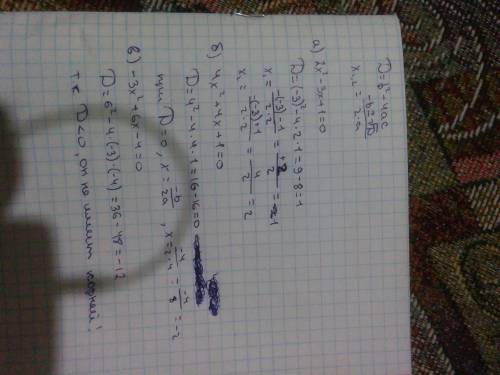 D=b²-4ac
x₁,₂ = -b±√D / 2·a
а) 2x²-3x+1=0
D=(-3)²-4·2·1=9-8=1
x₁ = -(-3)-1 / 2·2 = +2 / 2 = 1
x₂ = -(-3)+1 / 2·2 = 4 / 2 = 2
б) 4x²+4x+1=0
D=4²-4·4·1=16-16=0
при D=0, x = -b / 2a, x = -4 / 2·4 = -4 / 8 = -2
в) -3x²+6x-4=0
D=6²-4·(-3)·(-4)=36-48=-12
т.к D<0, он не имеет корней!